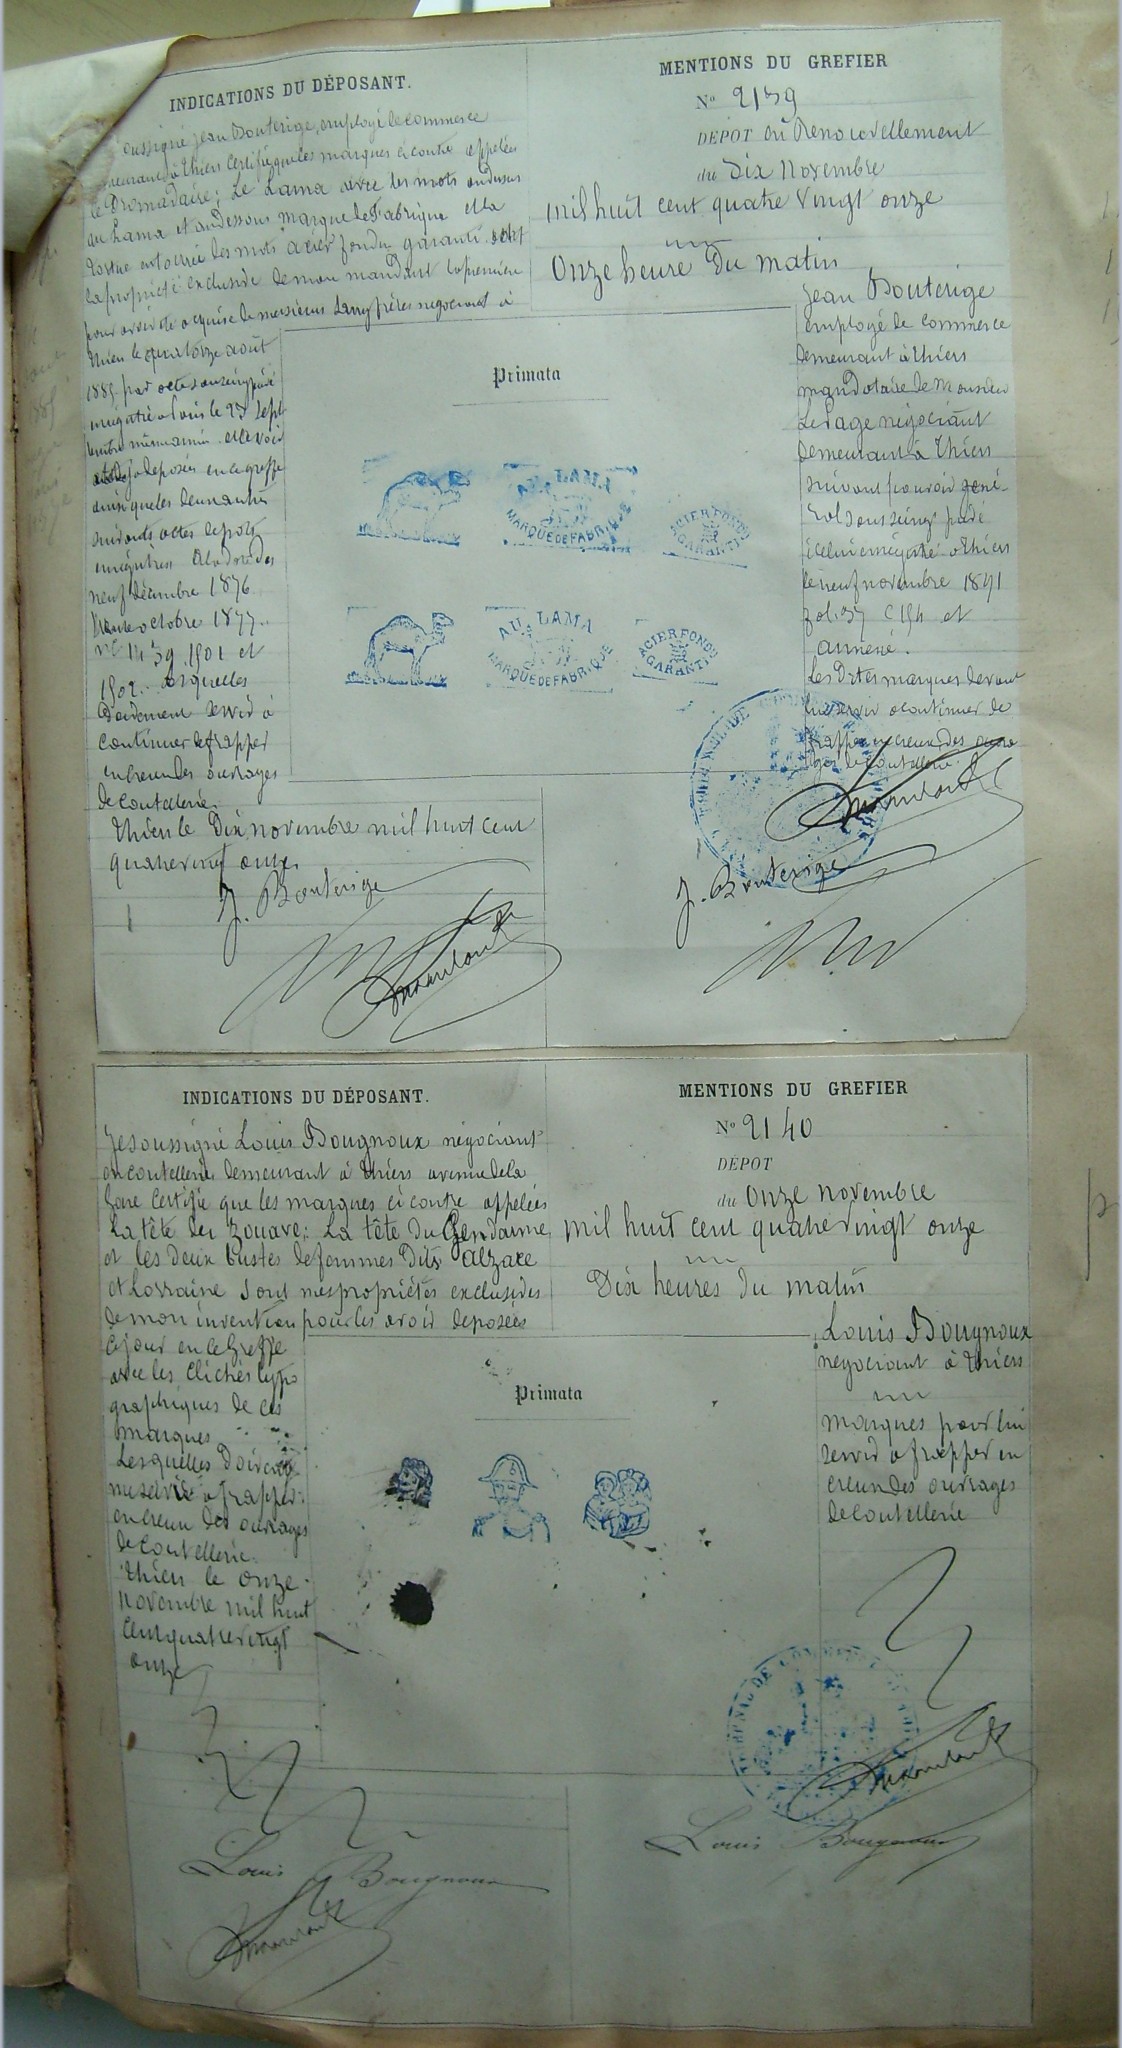 INDICATIONS DU DÉPOSANT.
oussigné Jean Bouterige, employé de commerce
à thiers certifie que les marques ci contre appelées
le Dromadaire; Le Lama avec les mots audessus
du Lama et audessous marque de Fabrique et la
tortue entourée des mots acier fondu garanti sont
la propriété exclusive de mon mandant la première
pour avoir été acquise de messieurs frères negociants à
thiers le quatorze août
1885 par acte sousseing privé
enregistré à le 23 sept
embre même année
deposée en ce greffe
ainsi que les
suivants actes de depots
enregistrés
neuf décembre 1876
trente octobre 1877
nos 1439. 1501 et
1502. lesquelles
servir à
continuer de frapper
en creux des ouvrages
de coutellerie.
thiers le Dix novembre mil huit cent
quatre vingt onze.
J. Bouterige
MENTIONS DU GREFIER
No 2139
DÉPOT en Renouvellement
du Dix Novembre
mil huit cent quatre vingt onze
Onze heure du matin
Jean Bouterige
employé de commerce
demeurant à thiers
mandataire de Monsieur
LePage négociant
demeurant à thiers
suivant pouvoir géné-
ral sousseing privé
enregistré à thiers
le neuf novembre 1891
fol. 37 c 154 et
annexé.
Les Dites marques devant
lui servir à continuer de
frapper en creux des ouvra
ges de coutellerie.
J. Bouterige
Primata
AU LAMA
MARQUE DE FABRIQUE
ACIER FONDU
GARANTI
AU LAMA
MARQUE DE FABRIQUE
ACIER FONDU
GARANTI
INDICATIONS DU DÉPOSANT.
Je soussigné Louis Bougnoux négociant
en coutellerie demeurant à thiers avenue de la
Gare certifie que les marques ci contre appelées
La tête du zouave; La tête du Gendarme
et les deux bustes de femmes dits Alzace
et Lorraine sont mes propriétés exclusives
de mon invention pour les avoir déposées
ce jour en ce Greffe
avec les clichés typo
graphiques de ces
marques
Lesquelles doivent
me servir à frapper
en creux des ouvrages
de coutellerie.
thiers le onze
novembre mil huit
cent quatre vingt
onze
Louis Bougnoux
MENTIONS DU GREFIER
No 2140
DÉPOT
du onze novembre
mil huit cent quatre vingt onze
Dix heures du matin
Louis Bougnoux
négociant à thiers
marques pour lui
servir à frapper en
creux des ouvrages
de coutellerie
Primata
TRIBUNAL DE COMMERCE
Louis Bougnoux